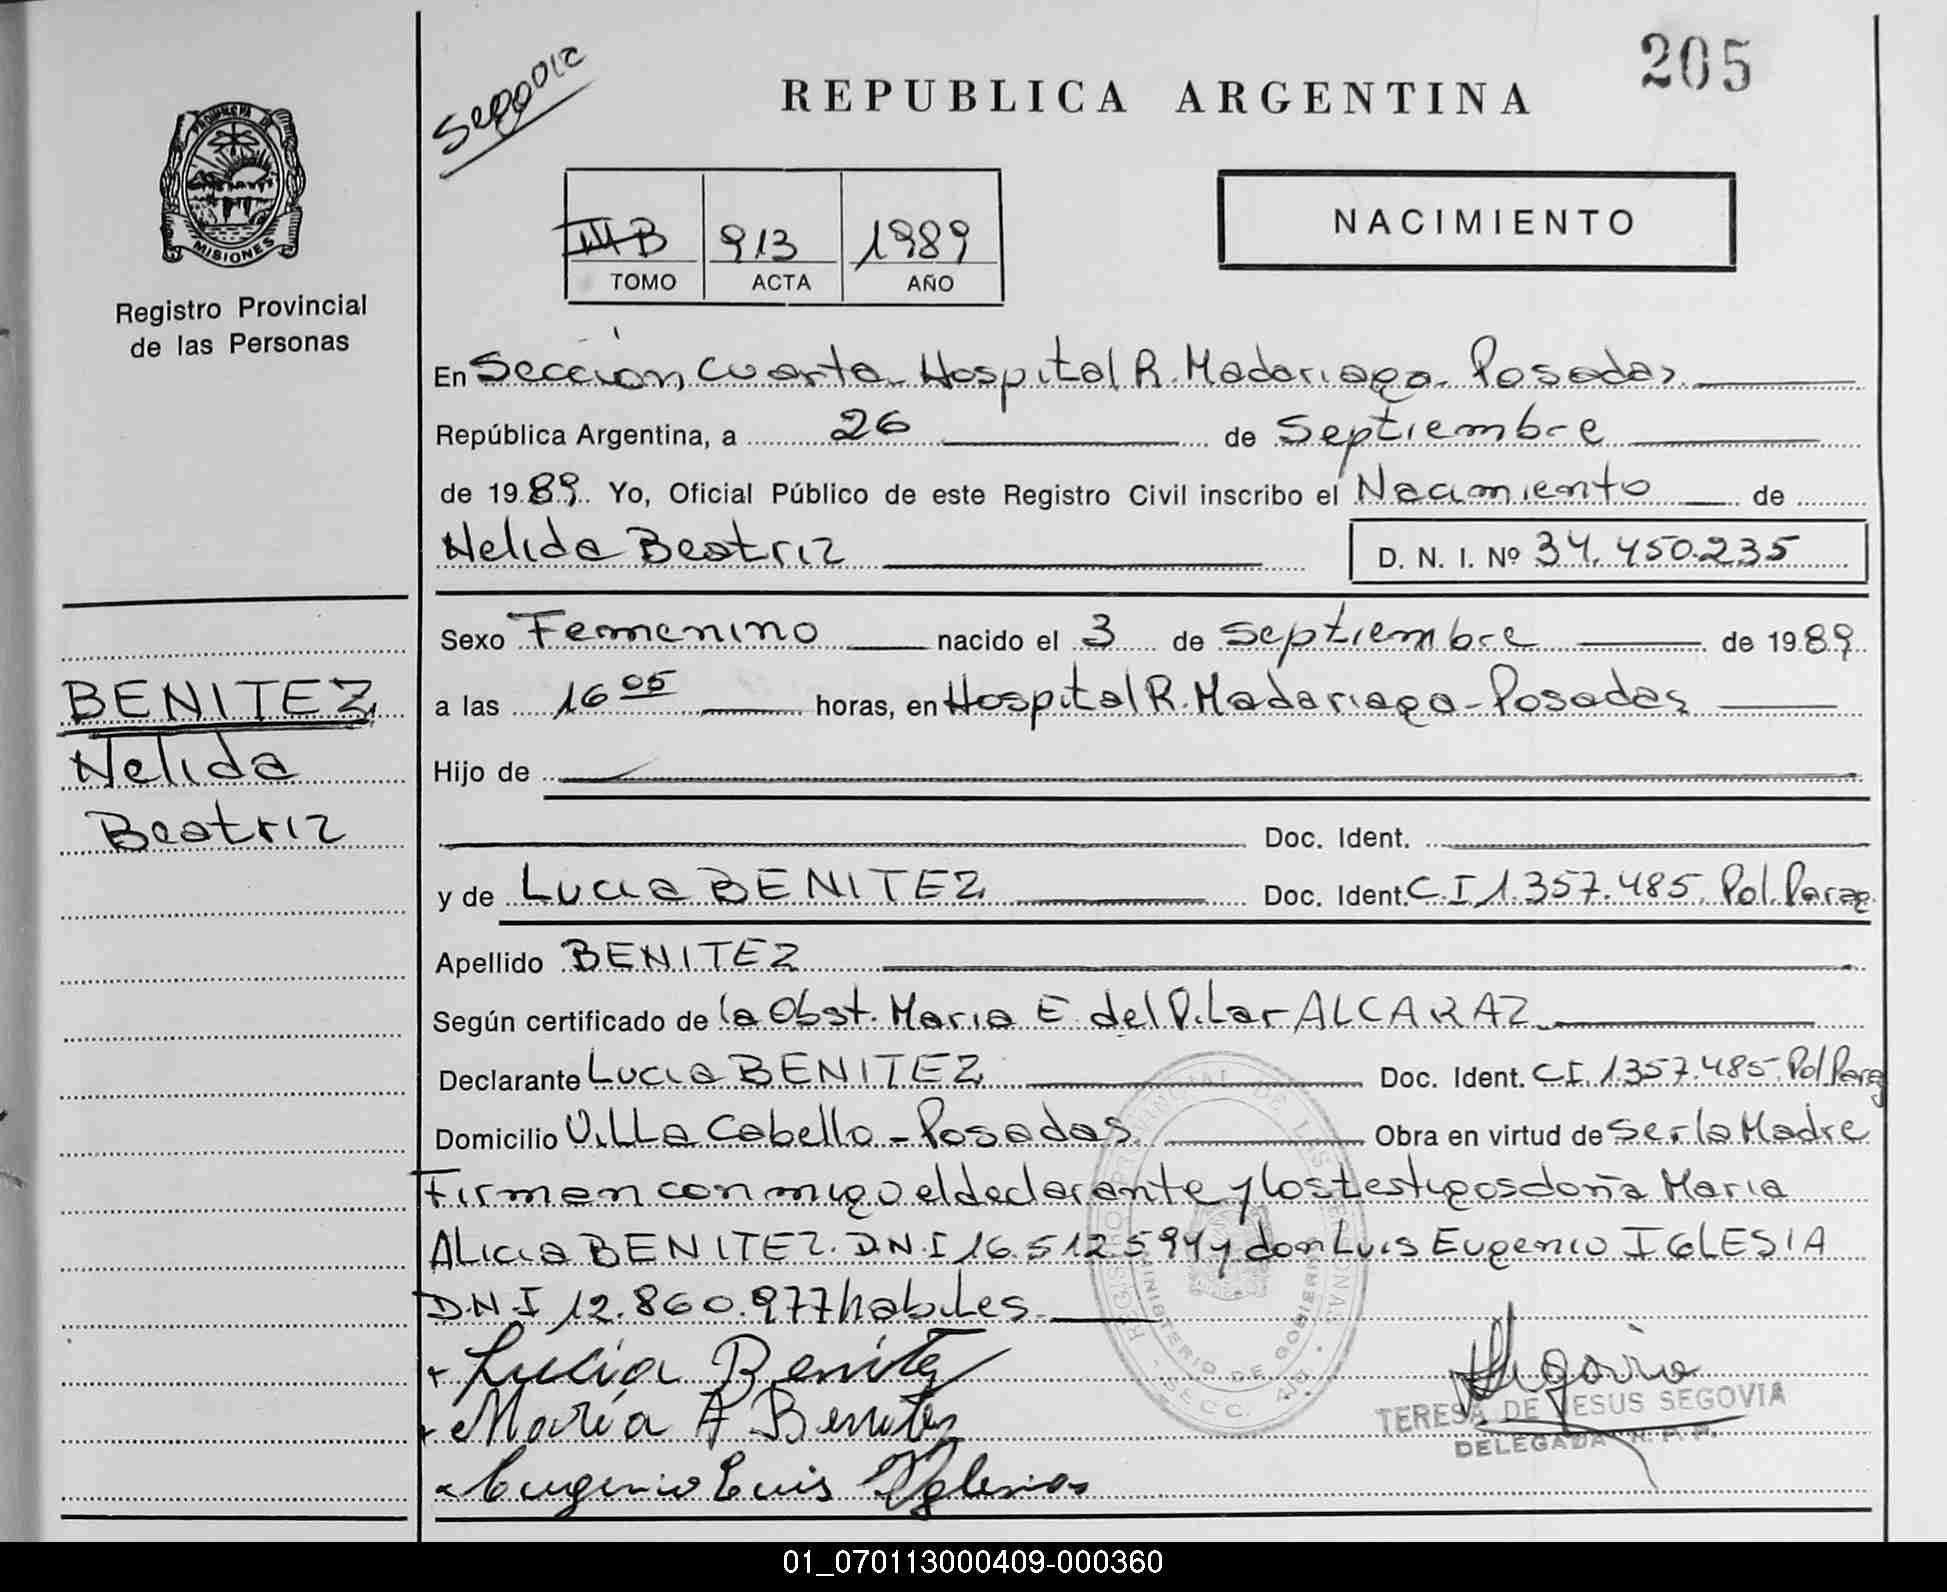 205
Segovia
REPUBLICA ARGENTINA
PROVINCIA DE
MISIONES
Registro Provincial
de las Personas
III B 913 1989
TOMO ACTA AÑO
NACIMIENTO
En Sección Cuarta Hospital R. Madariaga - Posadas
República Argentina, a 26 de Septiembre
de 1989. Yo, Oficial Público de este Registro Civil inscribo el Nacimiento de
Nelida Beatriz D. N. I. Nº 34.450.235
Sexo Femenino nacido el 3 de Septiembre de 1989
BENITEZ
Nelida
Beatriz
a las 16 05 horas, en Hospital R. Madariaga - Posadas
Hijo de
Doc. Ident.
y de Lucia BENITEZ Doc. Ident. C.I 1.357.485. Pol. Parag
Apellido BENITEZ
Según certificado de la Obst. Maria E. del Pilar ALCARAZ
Declarante Lucia BENITEZ Doc. Ident. C.I. 1.357.485. Pol Parag
Domicilio Villa Cabello - Posadas Obra en virtud de Ser la Madre
Firman conmigo el declarante y los testigos doña Maria
Alicia BENITEZ. D.N.I 16.512.594 y don Luis Eugenio IGLESIA
D.N.I 12.860.977 habiles
Lucia Benitez
María A Benitez
Eugenio Luis Yglesias
Segovia
TERESA DE JESUS SEGOVIA
DELEGADA
REGISTRO PROVINCIAL DE LAS PERSONAS
MINISTERIO DE GOBIERNO
SECC.
01_070113000409-000360